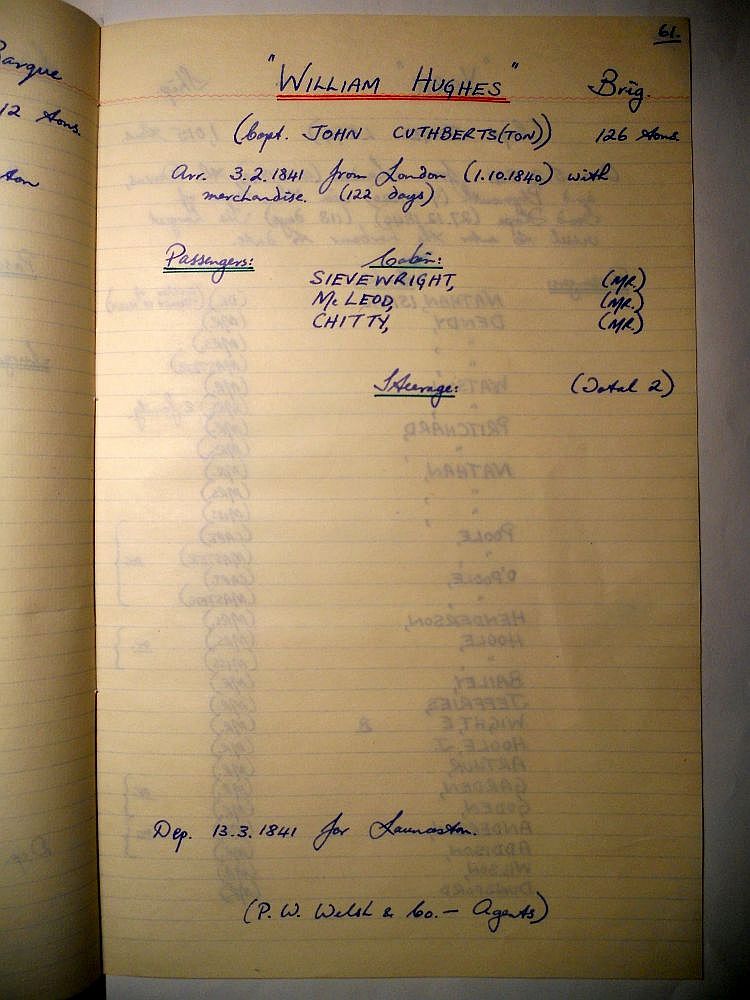 61.
"WILLIAM HUGHES" Brig.
(Capt. JOHN CUTHBERTS(TON)) 126 tons.
Arr. 3.2.1841 from London (1.10.1840) with
merchandise. (122 days)
Passengers: Cabin:
SIEVEWRIGHT, (MR.)
McLEOD, (MR.)
CHITTY, (MR.)
Steerage: (Total 2)
Dep. 13.3.1841 for Launceston.
(P. W. Welsh & Co. — Agents)
Barque
12 tons.